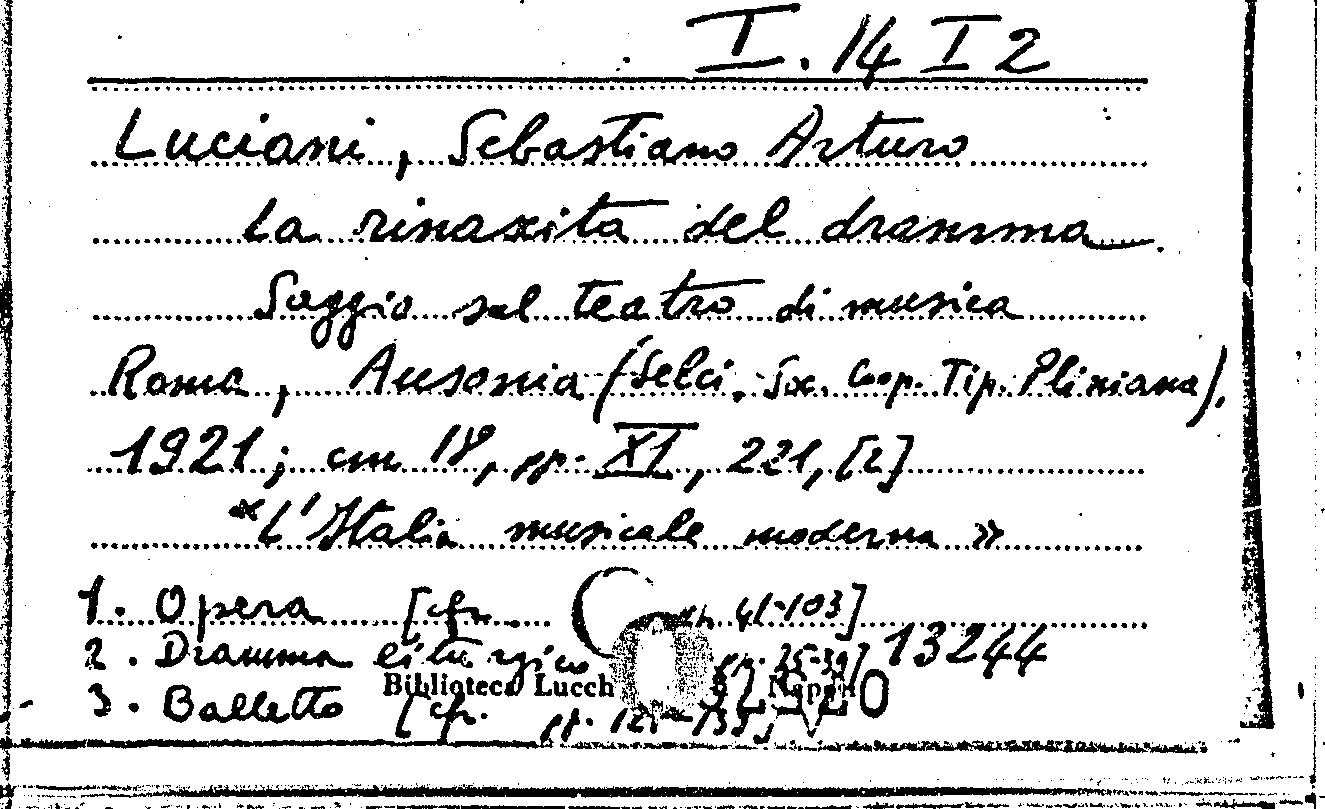 I. 14 I 2
Luciani, Sebastiano Arturo
La rinascita del dramma.
Saggio sul teatro di musica
Roma, Ausonia (Selci, Soc. Coop. Tip. Pliniana),
1921; cm 18, pp. XI, 221, [2]
"L'Italia musicale moderna»
1. Opera [cfr. 41-103]
2. Dramma liturgico pp. 25-39] 13244
Biblioteca Lucch
3. Balletto [cfr. pp.